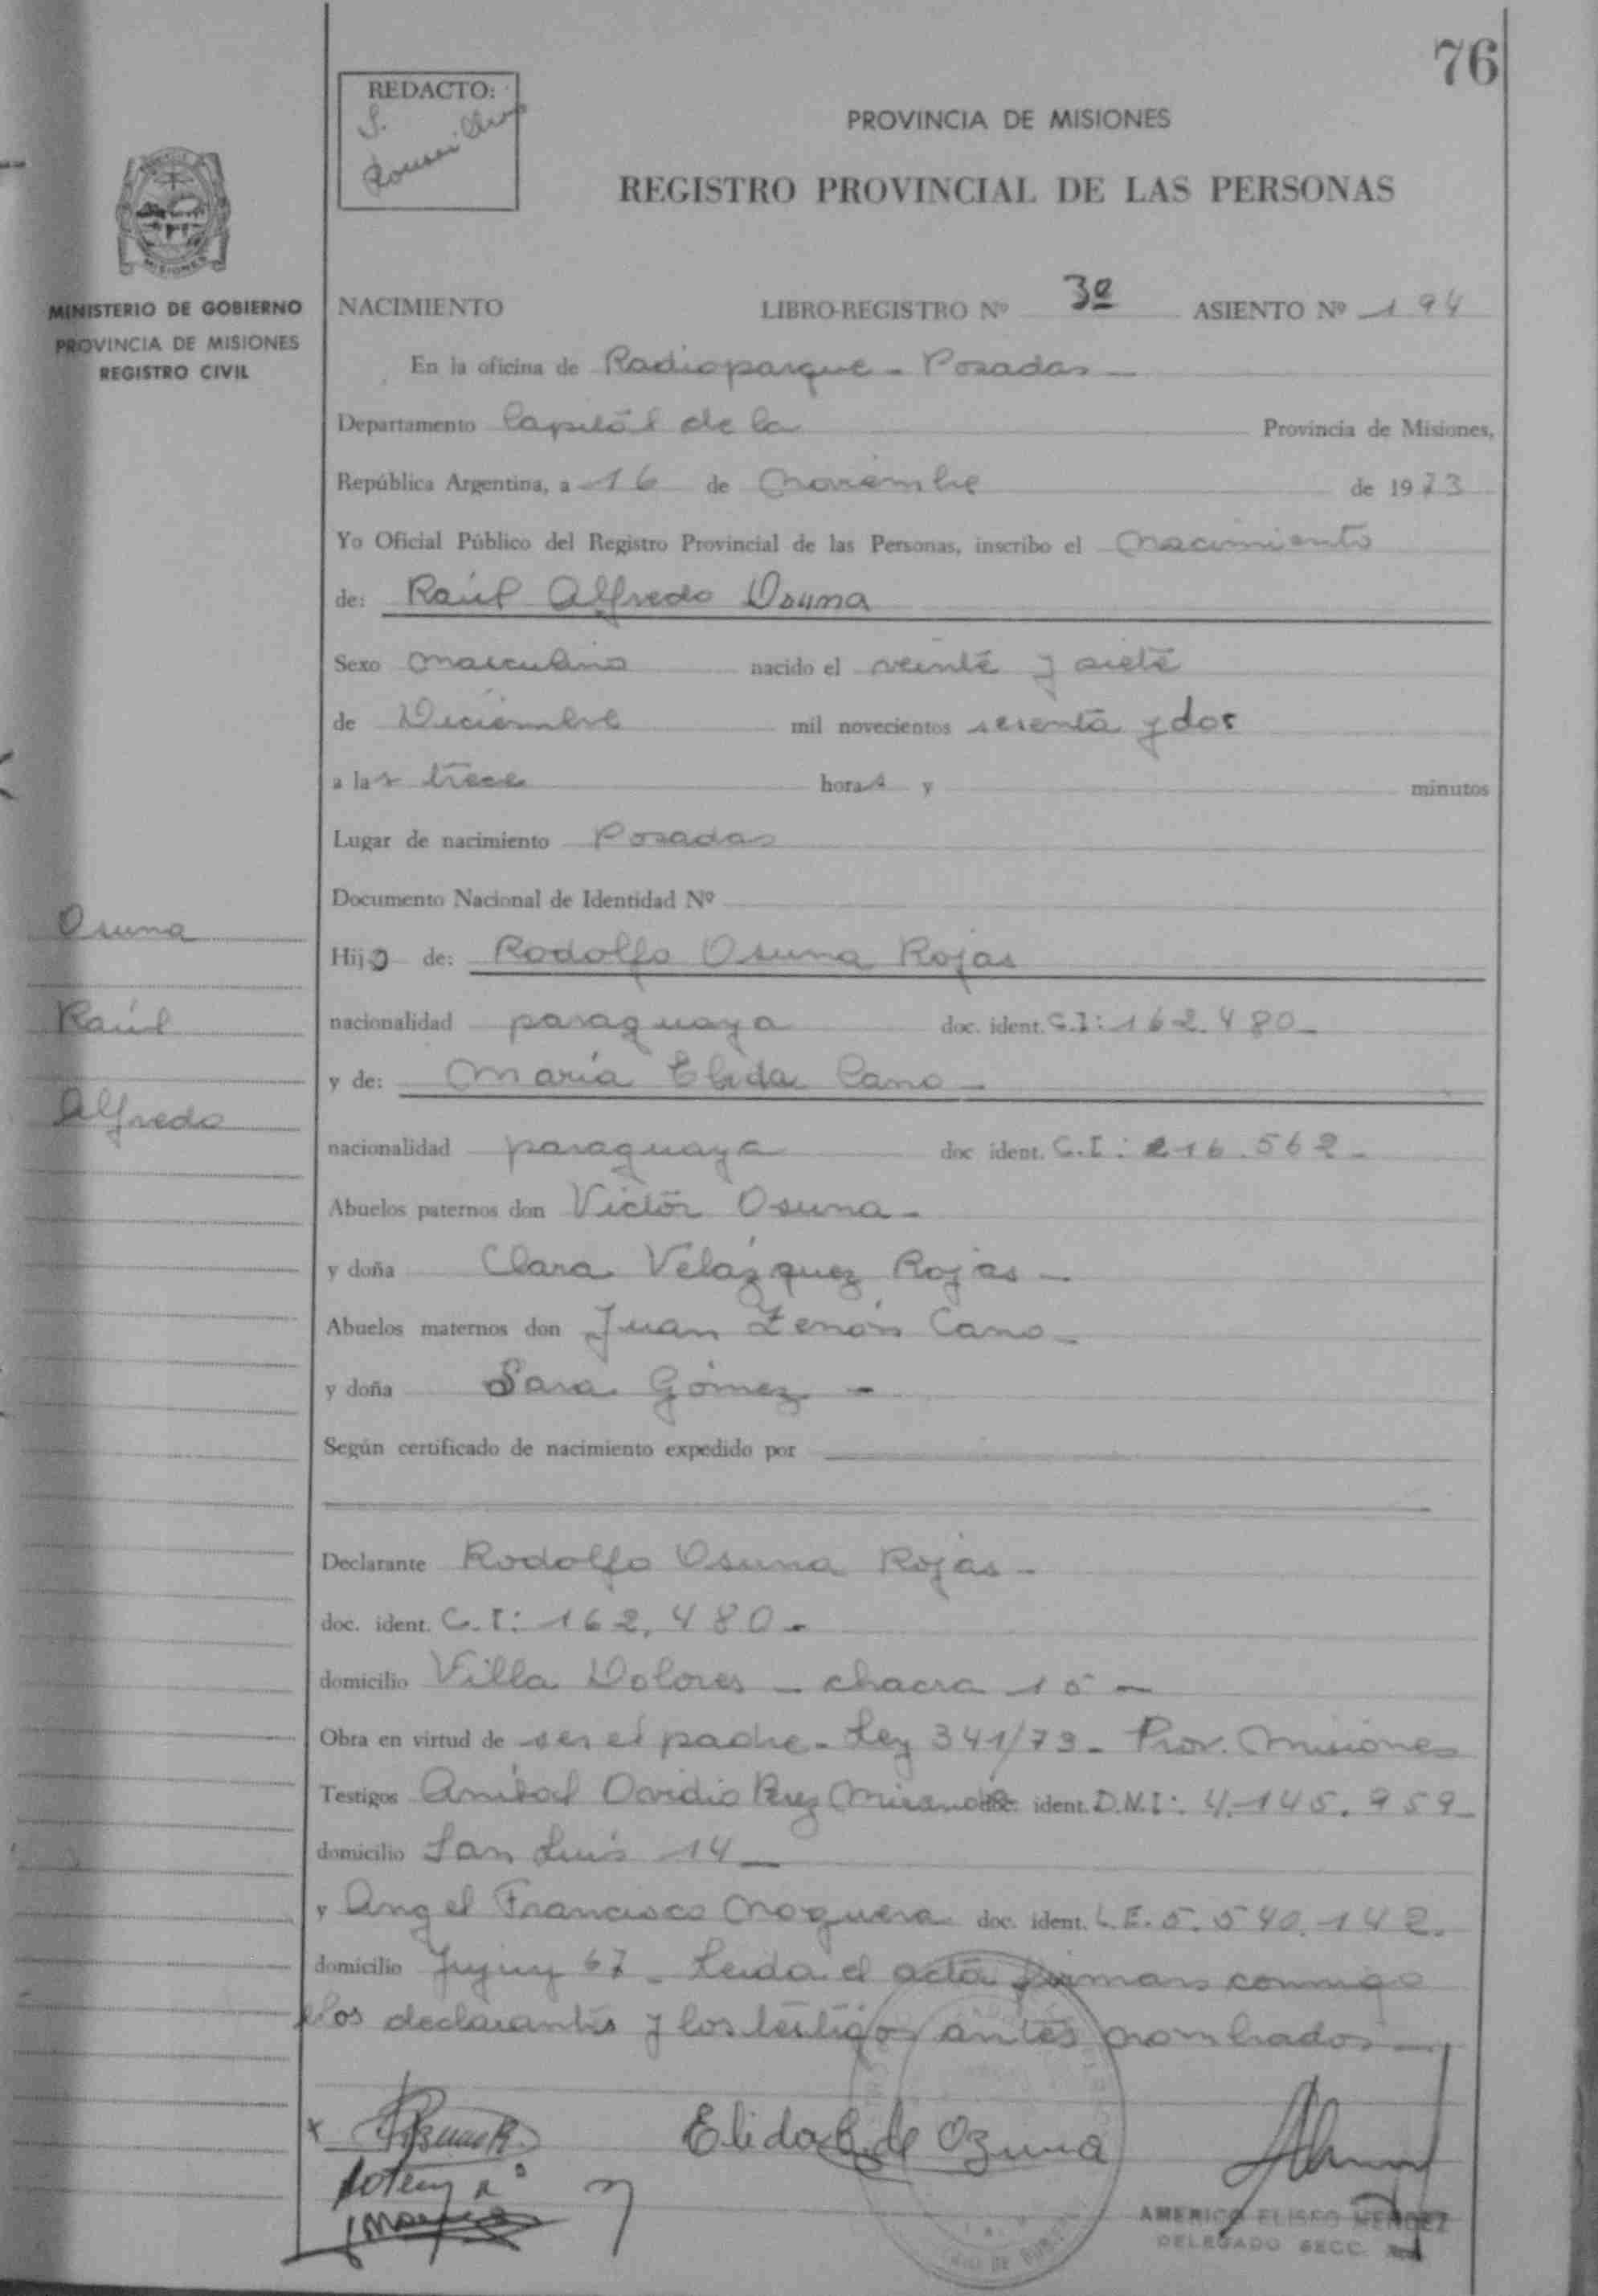 76
REDACTO:
S.
PROVINCIA DE MISIONES
REGISTRO PROVINCIAL DE LAS PERSONAS
MISIONES
MINISTERIO DE GOBIERNO
PROVINCIA DE MISIONES
REGISTRO CIVIL
NACIMIENTO LIBRO-REGISTRO Nº 3º ASIENTO Nº 194
En la oficina de Radioparque - Posadas -
Departamento Capital de la Provincia de Misiones,
República Argentina, a 16 de Noviembre de 1973
Yo Oficial Público del Registro Provincial de las Personas, inscribo el Nacimiento
de: Raúl Alfredo Osuna
Sexo masculino nacido el veinte y siete
de Diciembre mil novecientos sesenta y dos
a las trece horas y minutos
Lugar de nacimiento Posadas
Documento Nacional de Identidad Nº
Osuna
Hijo de: Rodolfo Osuna Rojas
Raúl
nacionalidad paraguaya doc. ident. C.I: 162.480-
y de: María Elida Cano -
Alfredo
nacionalidad paraguaya doc ident. C.I: 216.562-
Abuelos paternos don Victor Osuna -
y doña Clara Velázquez Rojas -
Abuelos maternos don Juan Zenón Cano -
y doña Sara Gómez -
Según certificado de nacimiento expedido por
Declarante Rodolfo Osuna Rojas -
doc. ident. C.I: 162.480 -
domicilio Villa Dolores - chacra 15 -
Obra en virtud de ser el padre - Ley 341/73 - Prov. Misiones
Testigos Anibal Ovidio Perez Miranda doc. ident. D.N.I: 4.145.959-
domicilio San Luis 14 -
y Angel Francisco Noguera doc. ident. L.E. 5.540.142.
domicilio Jujuy 67 - Leida el acta firman conmigo
los declarantes y los testigos antes nombrados -
Elida C. de Ozuna
AMERICO ELISEO MENDEZ
DELEGADO SECC.